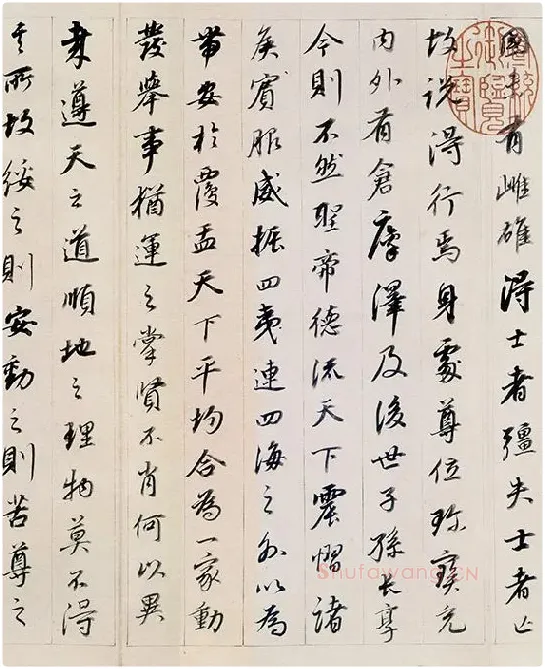 國未有雌雄得士者彊失士者亡
故說得行焉身處尊位珍寶充
内外有倉廩澤及後世子孫長享
今則不然聖帝德流天下震慴諸
侯賓服威振四夷連四海之外以為
帶安於覆盂天下平均合為一家動
發舉事猶運之掌賢不肖何以異
哉遵天之道順地之理物莫不得
其所故綏之則安動之則苦尊之
御覽之寶
Shufawang.CN